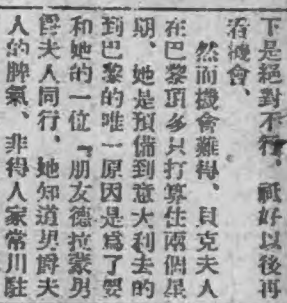 下是絕對不行，祇好以後再
看機會、
然而機會難得、貝克夫人
在巴黎頂多只打算住兩個星
期、她是預備到意大利去的
到巴黎的唯一原因是爲了要
和她的一位『朋友德拉蒙男
爵夫人同行、她知道男爵夫
人的脾氣、非得人家常川駐